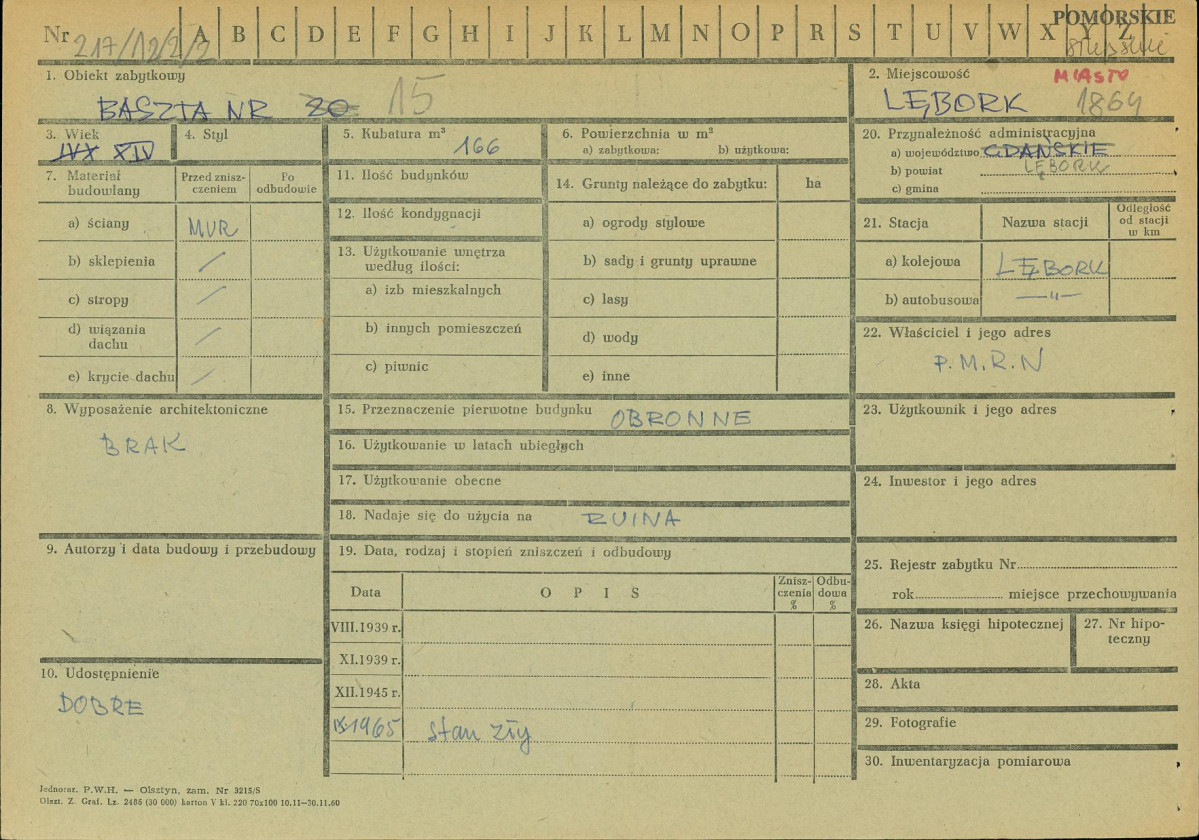 POMORSKIE
Nr 217/12/2/2 A B C D E F G H I J K L M N O P R S T U V W X Y Z
słupskie
1. Obiekt zabytkowy
BASZTA NR 20 15
2. Miejscowość MIASTO
LĘBORK 1864
3. Wiek
XIV
4. Styl
5. Kubatura m³
166
6. Powierzchnia w m²
a) zabytkowa: b) użytkowa:
20. Przynależność administracyjna
a) województwo GDAŃSKIE
b) powiat LĘBORK
c) gmina
7. Materiał budowlany
Przed zniszczeniem
Po odbudowie
a) ściany MUR
b) sklepienia /
c) stropy /
d) wiązania dachu /
e) krycie dachu /
11. Ilość budynków
12. Ilość kondygnacji
13. Użytkowanie wnętrza
według ilości:
a) izb mieszkalnych
b) innych pomieszczeń
c) piwnic
14. Grunty należące do zabytku: ha
a) ogrody stylowe
b) sady i grunty uprawne
c) lasy
d) wody
e) inne
21. Stacja Nazwa stacji Odległość od stacji w km
a) kolejowa LĘBORK
b) autobusowa —"—
22. Właściciel i jego adres
P.M.R.N
8. Wyposażenie architektoniczne
BRAK
15. Przeznaczenie pierwotne budynku OBRONNE
16. Użytkowanie w latach ubiegłych
17. Użytkowanie obecne
18. Nadaje się do użycia na RUINA
23. Użytkownik i jego adres
24. Inwestor i jego adres
9. Autorzy i data budowy i przebudowy
19. Data, rodzaj i stopień zniszczeń i odbudowy
Data OPIS Zniszczenia % Odbudowa %
VIII.1939 r.
XI.1939 r.
XII.1945 r.
IX.1965 stan zły
25. Rejestr zabytku Nr
rok miejsce przechowywania
26. Nazwa księgi hipotecznej
27. Nr hipoteczny
10. Udostępnienie
DOBRE
28. Akta
29. Fotografie
30. Inwentaryzacja pomiarowa
Jednoraz. P.W.H. — Olsztyn, zam. Nr 3215/S
Olszt. Z. Graf. Lz. 2485 (30 000) karton V kl. 220 70x100 10.11—30.11.60